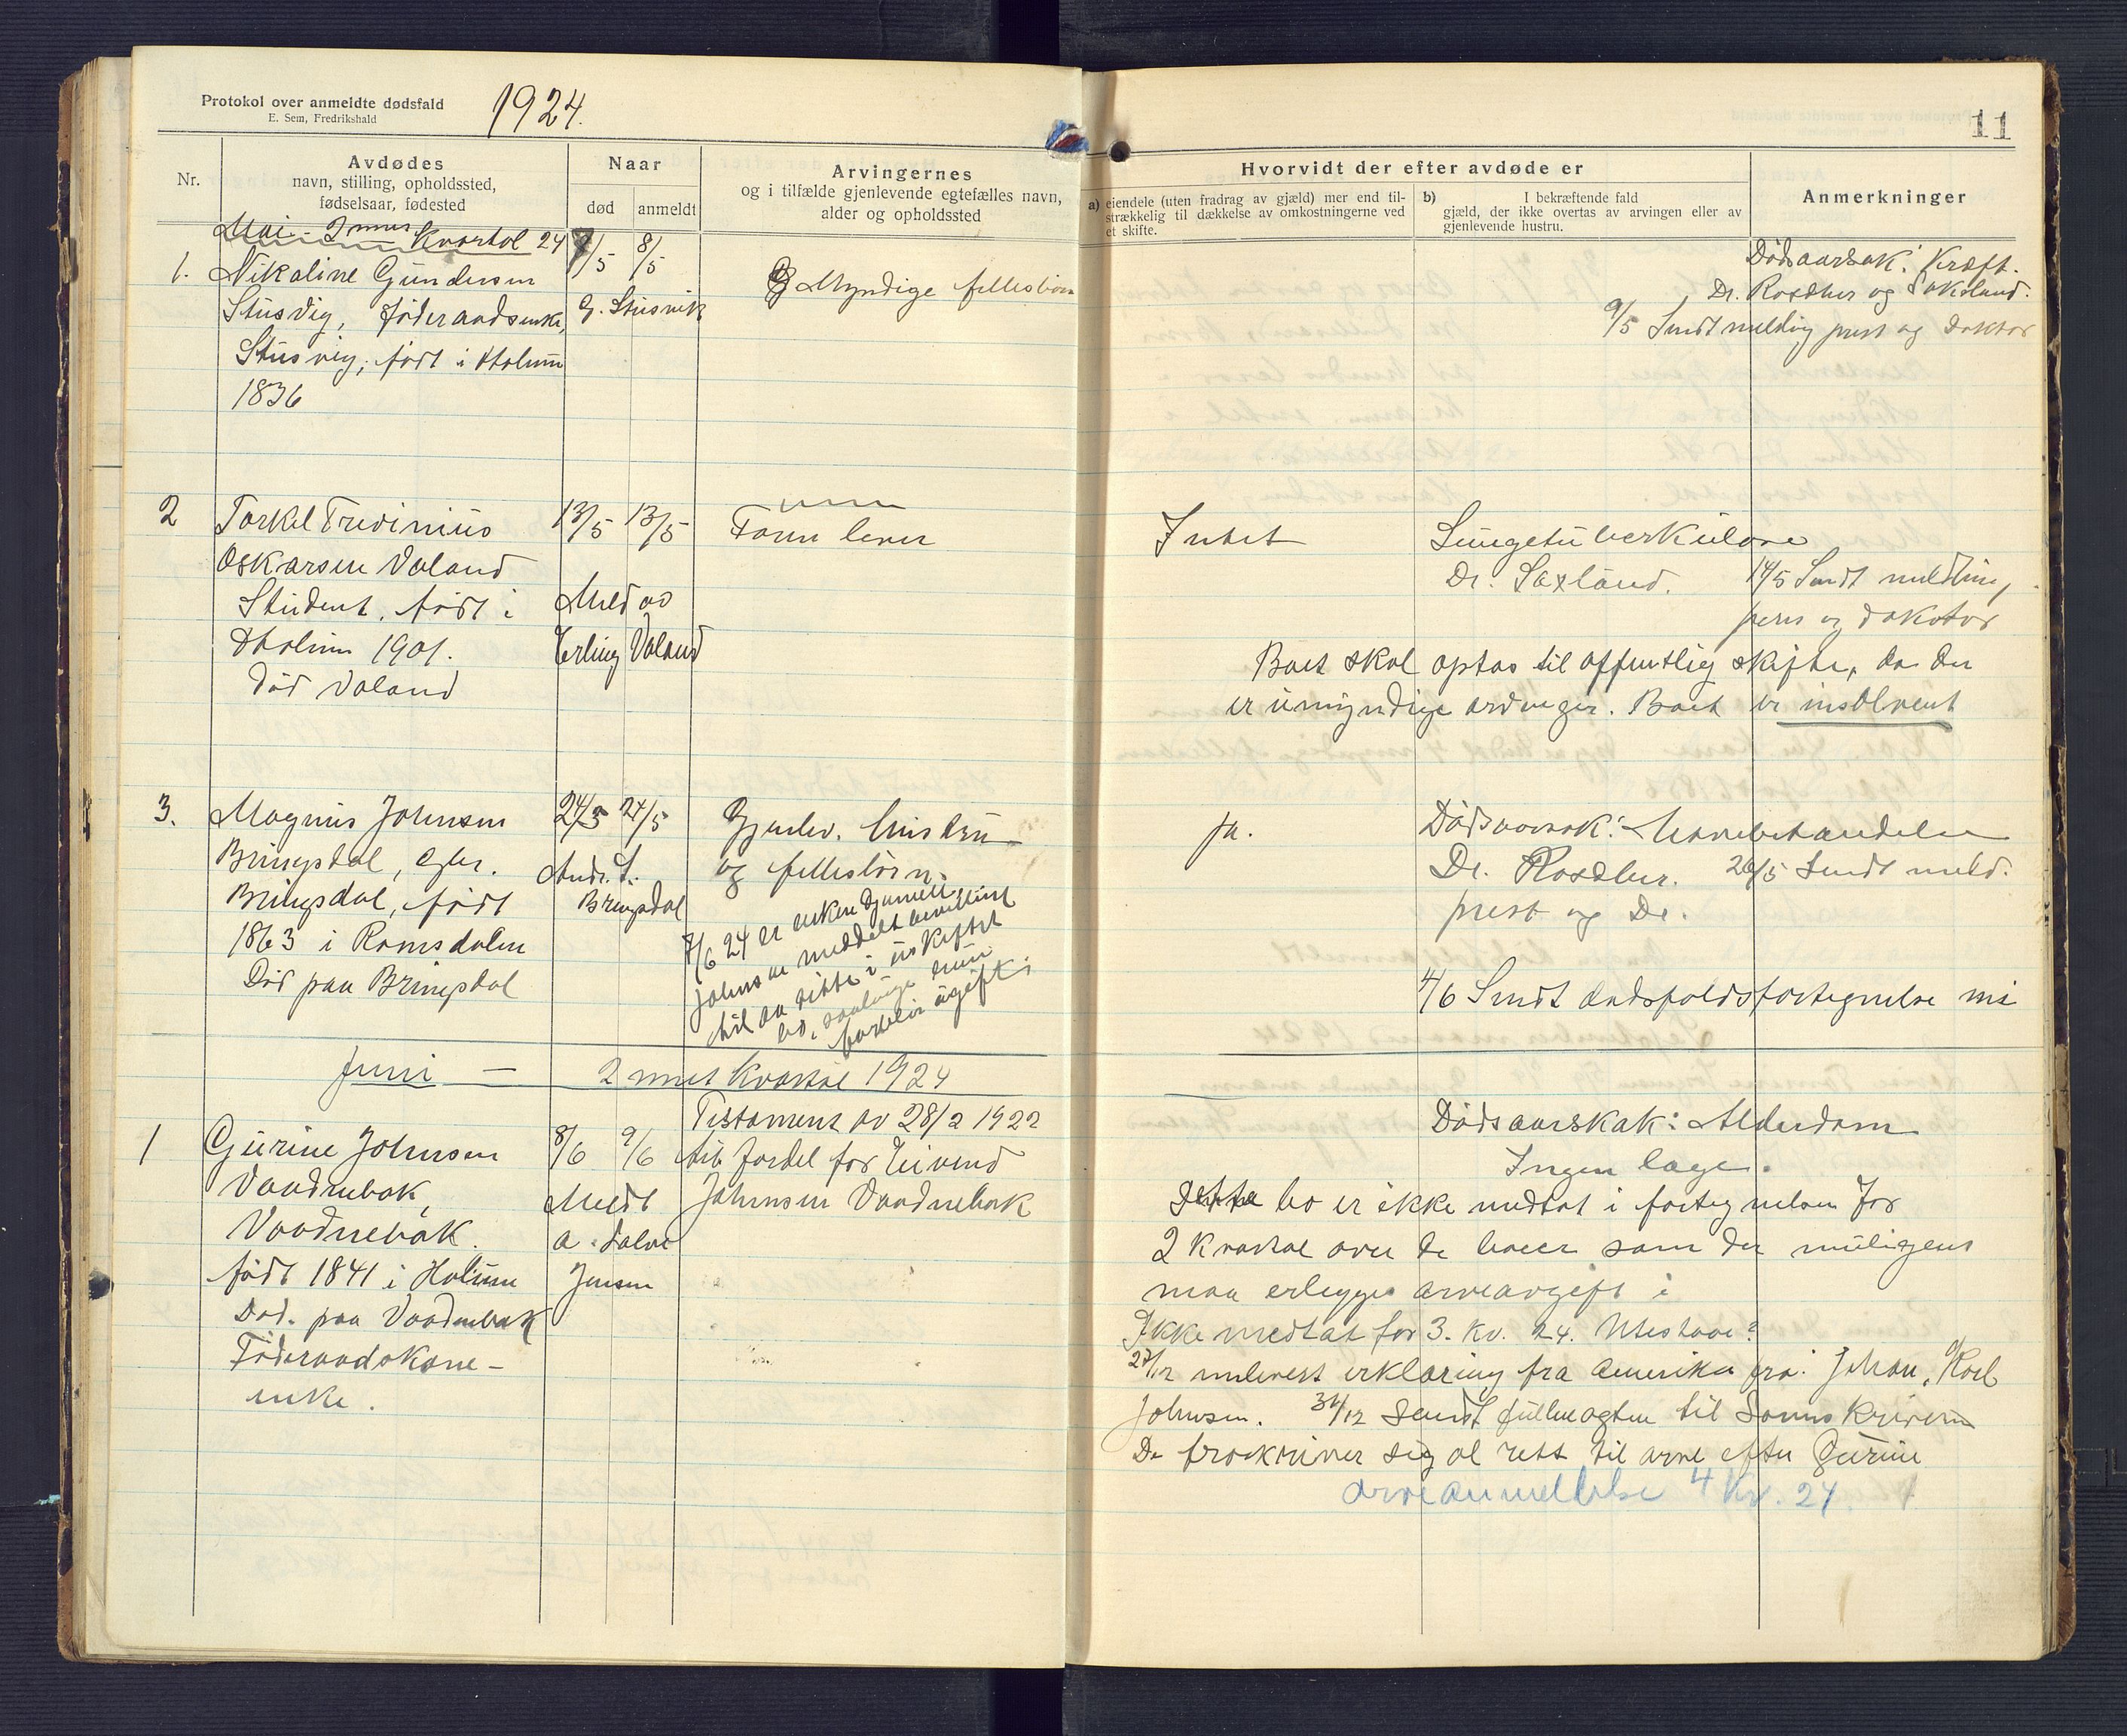 Protokol over anmeldte dødsfald
E. Sem, Fredrikshald
1924.
11
Nr.
Avdødes
navn, stilling, opholdssted,
fødselsaar, fødested
Naar
død
anmeldt
Arvingernes
og i tilfælde gjenlevende egtefælles navn,
alder og opholdssted
Hvorvidt der efter avdøde er
a) eiendele (uten fradrag av gjæld) mer end til-
strækkelig til dækkelse av omkostningerne ved
et skifte.
b) I bekræftende fald
gjæld, der ikke overtas av arvingen eller av
gjenlevende hustru.
Anmerkninger
Mai - 2 net Kvartal 24
1. Nikoline Gundersen
Stusvig, føderaadsenke,
Stusvig, født i Holum
1836
/5 8/5
G. Stusvik
Myndige fellesbørn
Dødsaarsak: Kræft.
Dr. Rosdher og
9/5 Sendt melding prest og Doktor
2 Torkel
Oskarsen Valand
Student, født i
Holum 1901.
Død Valand
13/5 13/5
Meld av
Erling Valand
Farm lever
Intet
Lungetuberkulose
Dr. Saxland. 14/5 Sendt melding
og doktor
Boet skal optas til offentlig skifte, da der
er umyndige arvinger. Boet er insolvent
3. Magnus Johnsen
Bringsdal, gbr.
Bringsdal, født
1863 i Romsdalen
Død paa Bringsdal
24/5 24/5
Andr. T.
Bringsdal
Gjenlev. hustru
og fellesbørn.
7/6 24 er enken Gunnell
Johnsen meddelt bevilling
til at sitte i uskiftet
bo, saalænge hun
forblir ugift.
ja.
Dødsaarsak:
Dr. Rosdher. 26/5 Sendt meld.
prest og Dr.
4/6 Sendt dødsfaldsfortegnelse
Juni — 2 net Kvartal 1924
1 Gurine Johnsen
Vaadnebak,
Vaadnebak.
født 1841 i Holum
Død. paa Vaadnebak
Føderaadskone -
enke.
8/6 9/6
Meldt
a. Salve
Jensen
Testament av 28/2 1922
til fordel for Eivind
Johnsen Vaadnebak
Dødsaarskak: Alderdom
Ingen læge.
Dette bo er ikke medtat i fortegnelsen for
2 Kvartal over de boer som der muligens
maa erlegges arveavgift i
Ikke medtat for 3. Kv. 24.
27/12 innlevert erklæring fra Amerika fra: Johan, Karl
Johnsen. 31/12 Sendt fullmagten til Sorenskriveren
De fraskriver sig al rett til arv efter Gurine
arveanmeldelse 4 Kv. 24.